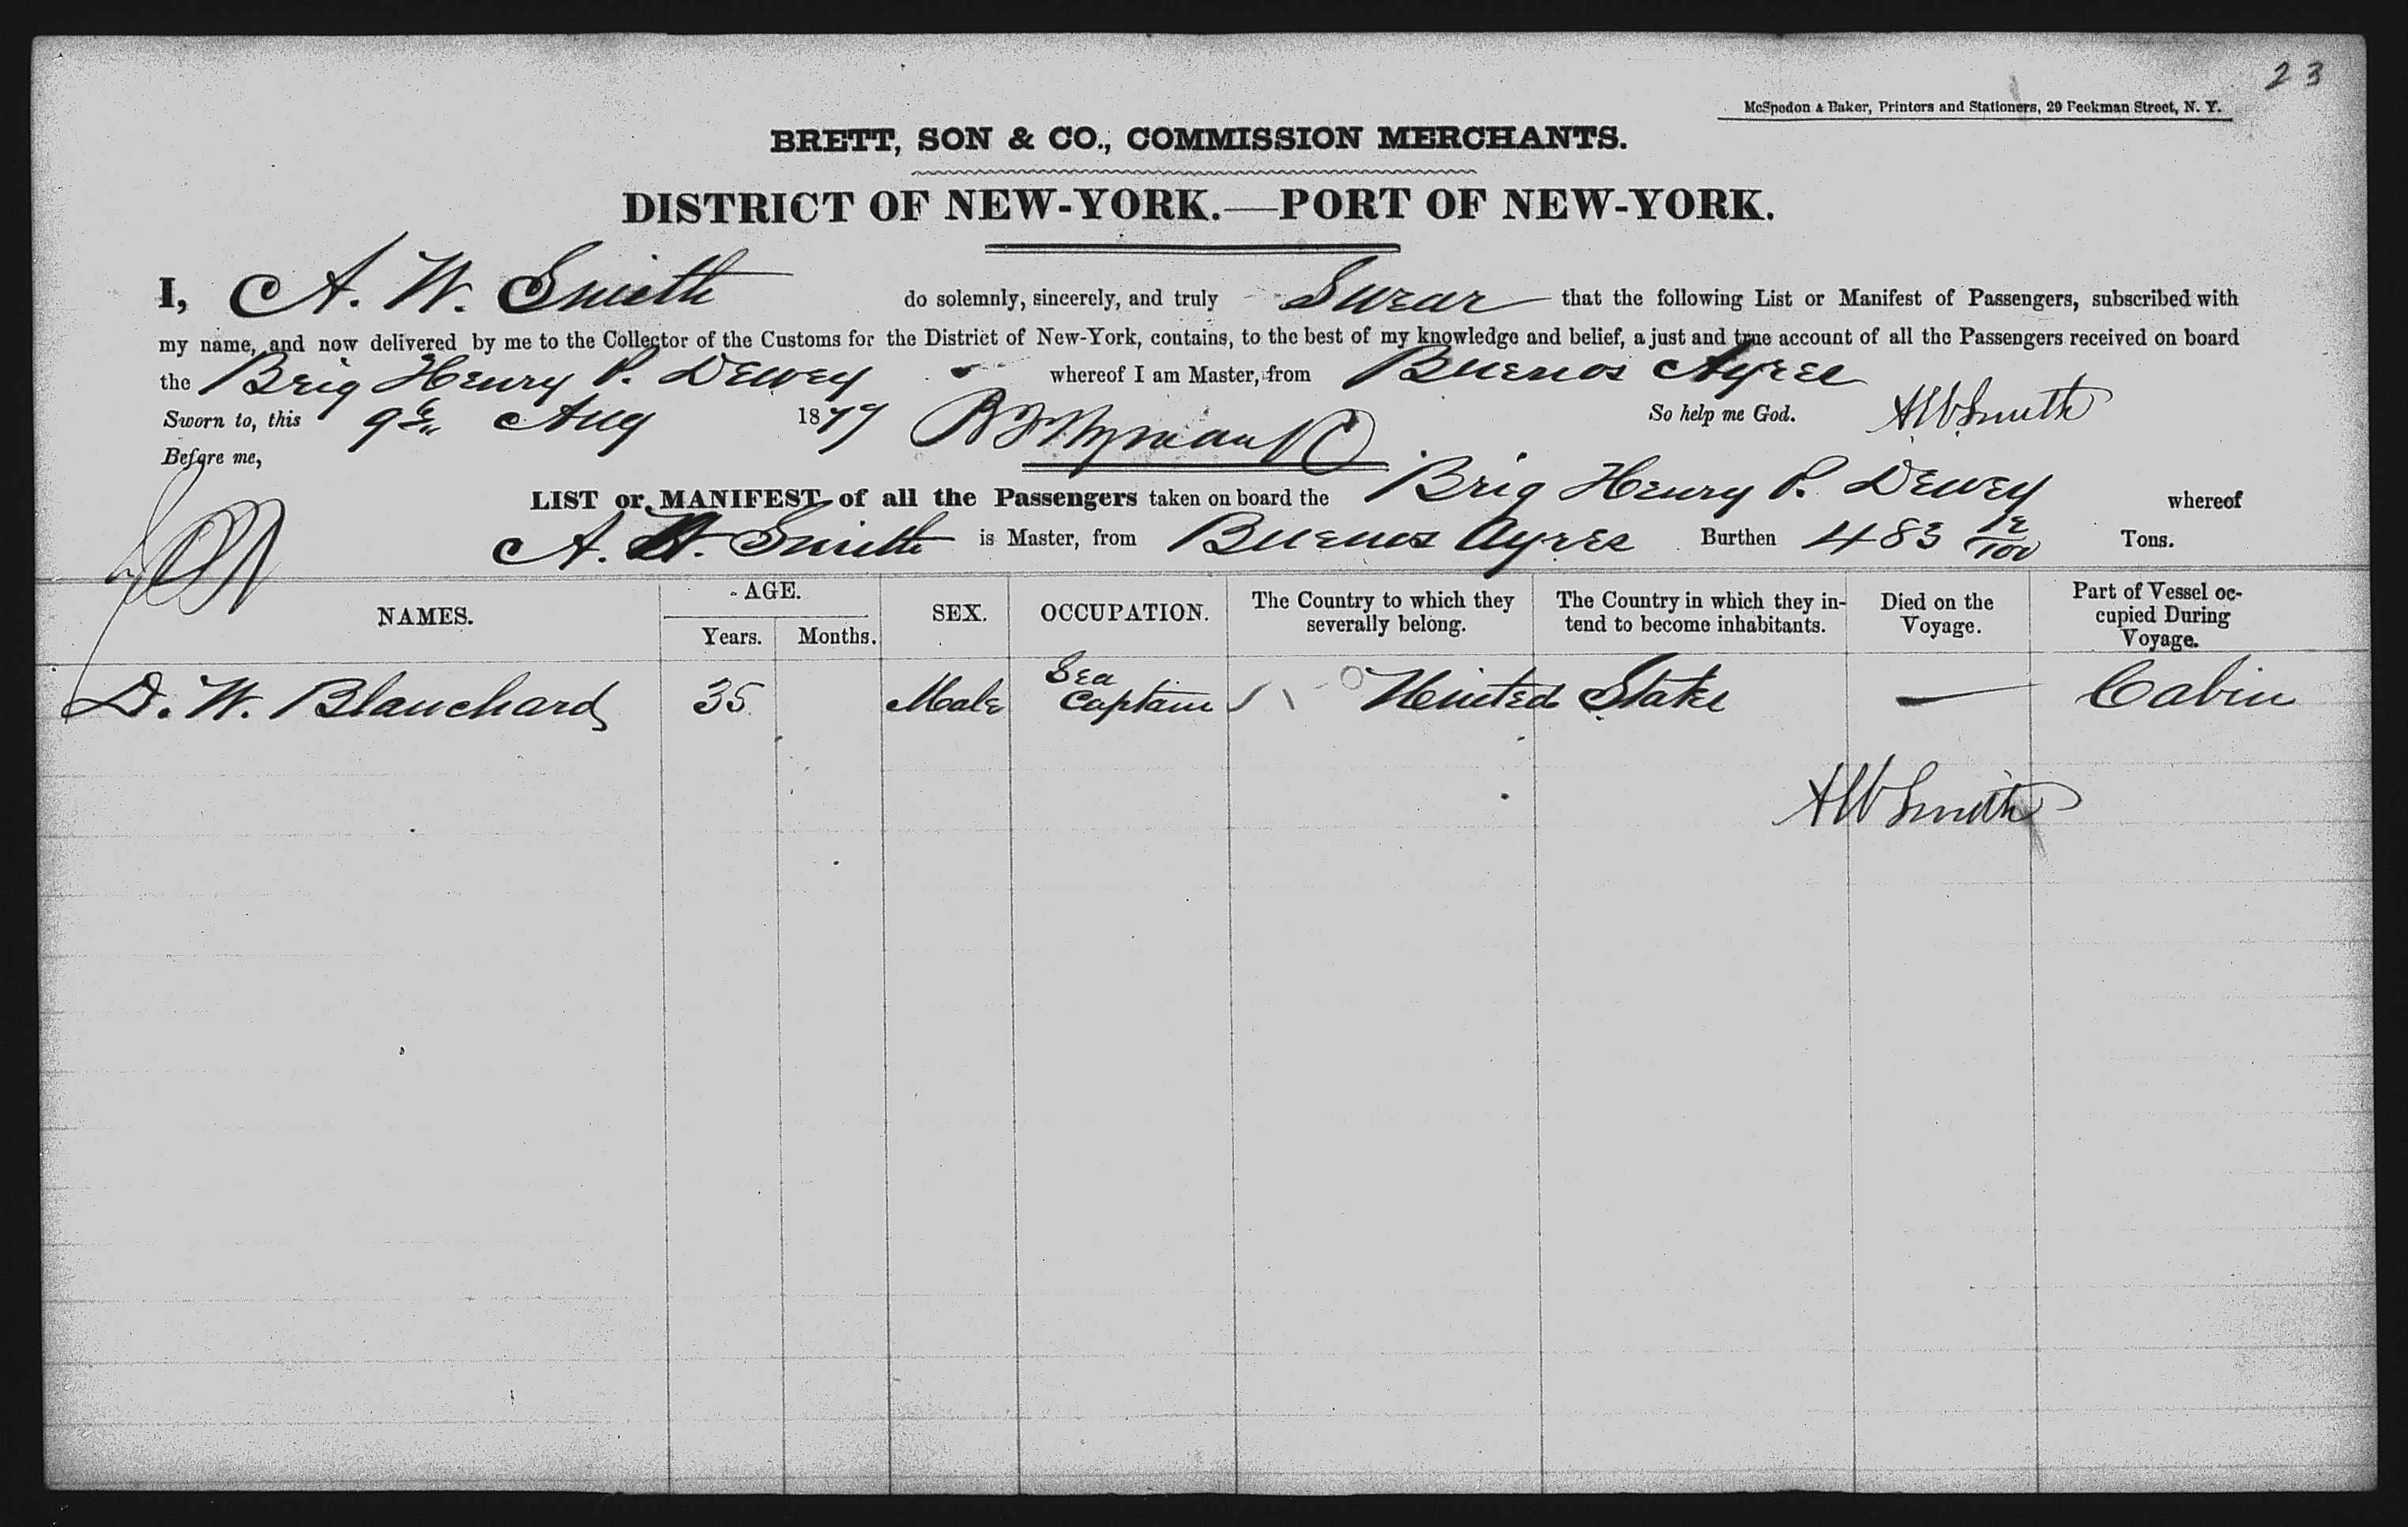 23
McSpedon & Baker, Printers and Stationers, 29 Beekman Street, N. Y.
BRETT, SON & CO., COMMISSION MERCHANTS.
DISTRICT OF NEW-YORK.—PORT OF NEW-YORK.
I, A. W. Smith do solemnly, sincerely, and truly Swear that the following List or Manifest of Passengers, subscribed with
my name, and now delivered by me to the Collector of the Customs for the District of New-York, contains, to the best of my knowledge and belief, a just and true account of all the Passengers received on board
the Brig Henry P. Dewey whereof I am Master, from Buenos Ayres
Sworn to, this 9th Aug 1879 So help me God. AW Smith
Before me,
LIST or MANIFEST of all the Passengers taken on board the Brig Henry P. Dewey whereof
A. W. Smith is Master, from Buenos Ayres Burthen 483 12/100 Tons.
NAMES. AGE. Years. Months. SEX. OCCUPATION. The Country to which they severally belong. The Country in which they intend to become inhabitants. Died on the Voyage. Part of Vessel occupied During Voyage.
D. W. Blanchard 35 Male Sea Captain United State — Cabin
AW Smith